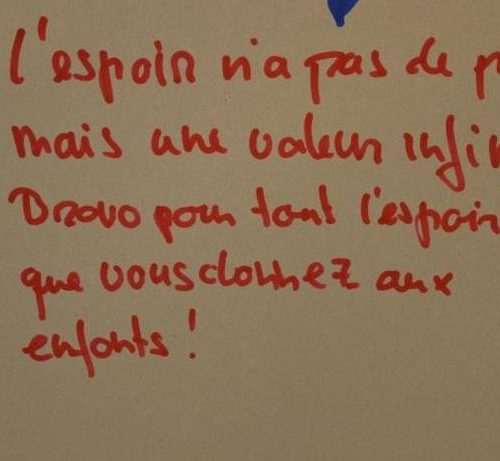 l'espoir n'a pas de p
mais une valeur infin
Bravo pour tout l'espoir
que vous donnez aux
enfants !